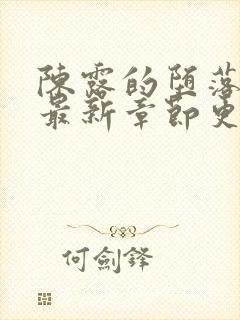 陳露的墮落
最新章節更
何劍鋒